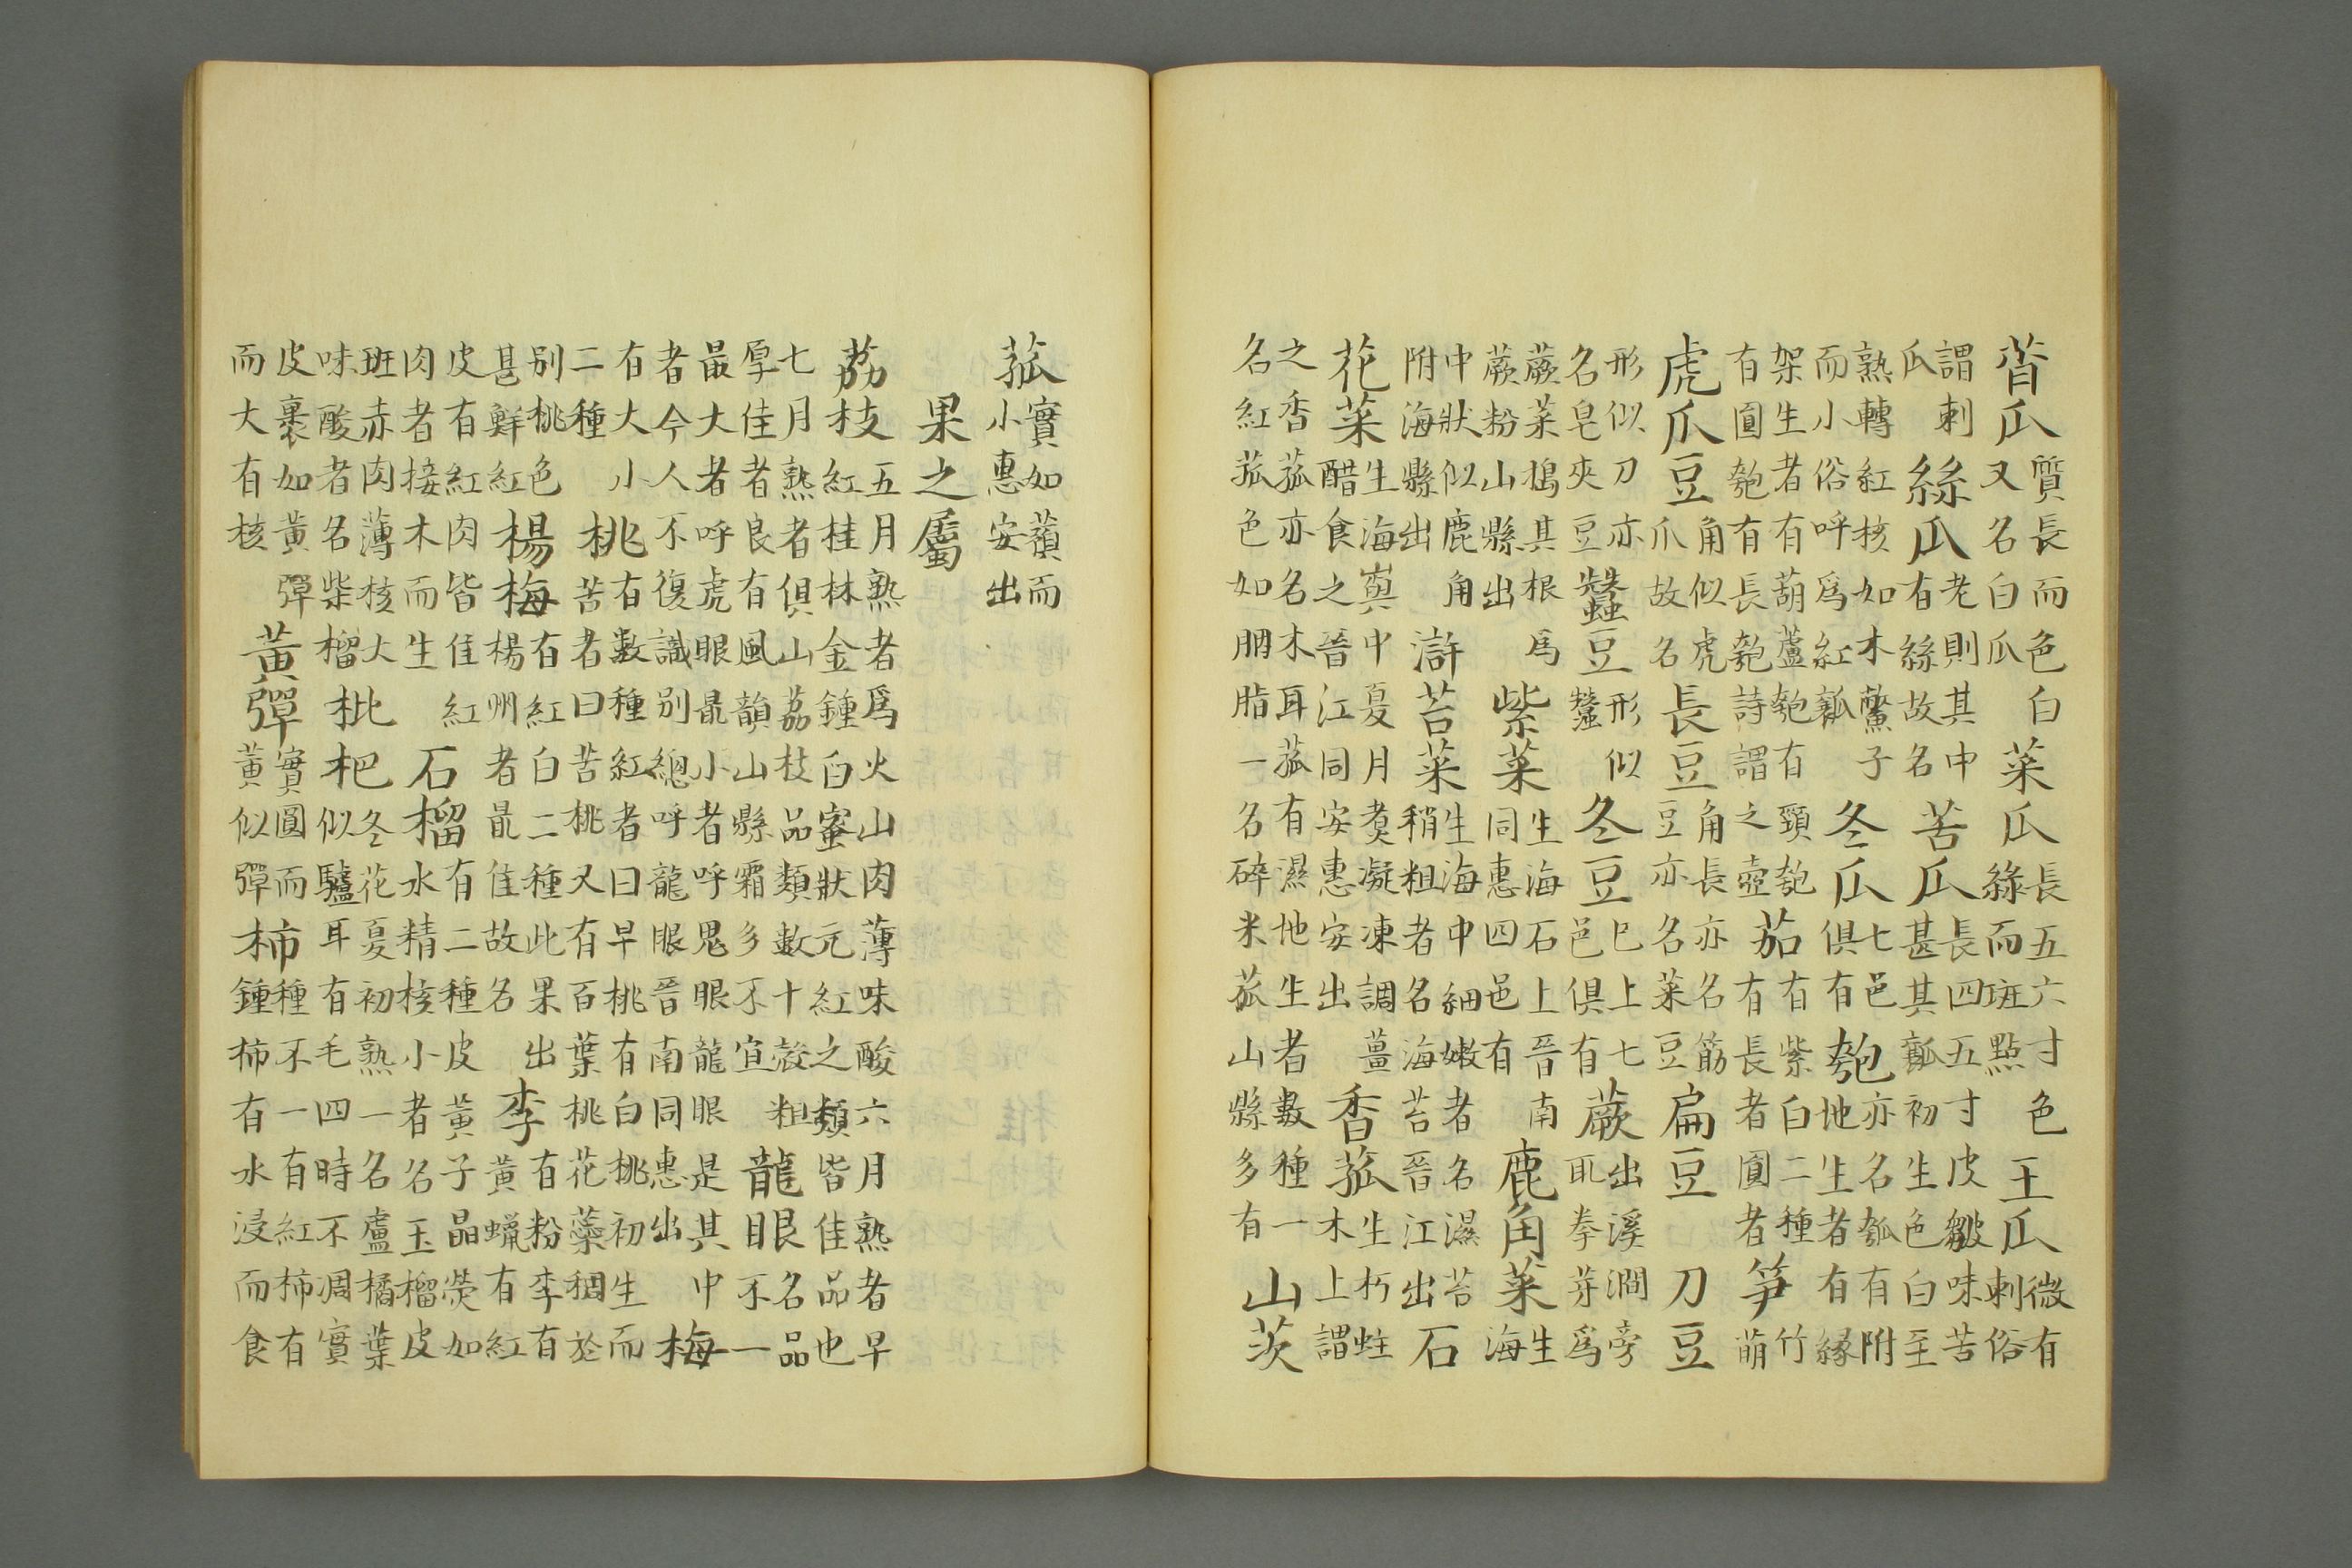 菁瓜質長而色白又名白瓜菜瓜長五六寸色綠而班點王瓜微有刺俗
謂刺瓜絲瓜老則其中有絲故名苦瓜長四五寸皮皺味苦甚其瓤初生色白至
熟轉紅核如木鱉子而小俗呼爲紅瓤冬瓜七邑俱有匏亦名瓠有附地生者有緣
架生者有葫蘆匏有頸匏有圓匏有長匏詩謂之壺茄有紫白二種有長者圓者笋竹萌
虎爪豆角似虎爪故名長豆角長亦名筯豆亦名菜豆扁豆刀豆
形似刀亦名皂夾豆蠶豆形似蠶冬豆已上七邑俱有蕨出溪澗旁爪拳芽爲
蕨菜搗其根爲蕨粉山縣出紫菜生海石上晉南同惠四邑有鹿角菜生海
中狀似鹿角附海縣出滸苔菜生海中細嫩者名濕苔稍粗者名海苔晉江出石
花菜生海嶼中夏月煑凝凍調薑醋食之晉江同安惠安出香菰生朽蛀木上謂
之香菰亦名木耳菰有濕地生者數種一名紅菰色如胭脂一名碎米菰山縣多有山茨
菰實如蕷而小惠安出
果之屬
荔枝五月熟者爲火山肉薄味酸六月熟者早紅桂林金鍾白蜜狀元紅之類皆佳品也
七月熟者俱山荔枝品類數十殼粗厚佳者良有風韻山縣霜多不宜龍眼名品不一
最大者呼虎眼最小者呼鬼眼龍眼是其中者今人不復識別總呼龍眼晉南同惠出梅
有大小二種桃有數種紅者曰早桃有白桃初生而苦者曰苦桃又有百葉桃花蘂稠於
別桃色甚鮮紅楊梅有紅白二種此果出楊州者最佳故名李有粉李有黃蠟有紅
皮有紅肉皆佳紅肉者接木而生石榴有二種皮黃子晶熒如水精核小者名玉榴皮
班赤肉薄核大味酸者名柴榴枇杷冬花夏初熟一名盧橘葉似驢耳有毛四時不凋實
皮裹如黃彈而大有核黃彈實圓而黃似彈柿種不一有紅柿有鍾柿有水浸而食